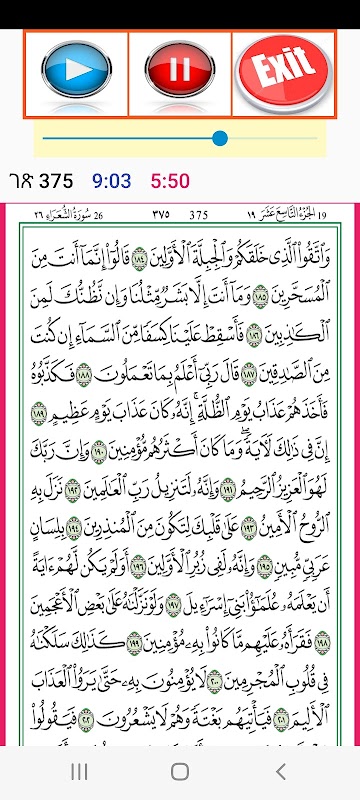 Exit
ገጽ 375 9:03 5:50
26 سُورَةُ الشُّعَرَاءِ ٢٦ ٣٧٥ 375 الجُزْءُ التَّاسِعَ عَشَرَ ١٩ 19
وَاتَّقُوا الَّذِي خَلَقَكُمْ وَالْجِبِلَّةَ الْأَوَّلِينَ ١٨٤ قَالُوا إِنَّمَا أَنتَ مِنَ
الْمُسَحَّرِينَ ١٨٥ وَمَا أَنتَ إِلَّا بَشَرٌ مِّثْلُنَا وَإِن نَّظُنُّكَ لَمِنَ
الْكَٰذِبِينَ ١٨٦ فَأَسْقِطْ عَلَيْنَا كِسَفًا مِّنَ السَّمَاءِ إِن كُنتَ
مِنَ الصَّٰدِقِينَ ١٨٧ قَالَ رَبِّي أَعْلَمُ بِمَا تَعْمَلُونَ ١٨٨ فَكَذَّبُوهُ
فَأَخَذَهُمْ عَذَابُ يَوْمِ الظُّلَّةِ ۚ إِنَّهُ كَانَ عَذَابَ يَوْمٍ عَظِيمٍ ١٨٩
إِنَّ فِي ذَٰلِكَ لَآيَةً ۖ وَمَا كَانَ أَكْثَرُهُم مُّؤْمِنِينَ ١٩٠ وَإِنَّ رَبَّكَ
لَهُوَ الْعَزِيزُ الرَّحِيمُ ١٩١ وَإِنَّهُ لَتَنزِيلُ رَبِّ الْعَٰلَمِينَ ١٩٢ نَزَلَ بِهِ
الرُّوحُ الْأَمِينُ ١٩٣ عَلَىٰ قَلْبِكَ لِتَكُونَ مِنَ الْمُنذِرِينَ ١٩٤ بِلِسَانٍ
عَرَبِيٍّ مُّبِينٍ ١٩٥ وَإِنَّهُ لَفِي زُبُرِ الْأَوَّلِينَ ١٩٦ أَوَلَمْ يَكُن لَّهُمْ ءَايَةً
أَن يَعْلَمَهُ عُلَمَٰٓؤُا بَنِي إِسْرَٰٓءِيلَ ١٩٧ وَلَوْ نَزَّلْنَٰهُ عَلَىٰ بَعْضِ الْأَعْجَمِينَ
١٩٨ فَقَرَأَهُ عَلَيْهِم مَّا كَانُوا بِهِ مُؤْمِنِينَ ١٩٩ كَذَٰلِكَ سَلَكْنَٰهُ
فِي قُلُوبِ الْمُجْرِمِينَ ٢٠٠ لَا يُؤْمِنُونَ بِهِ حَتَّىٰ يَرَوُا الْعَذَابَ
الْأَلِيمَ ٢٠١ فَيَأْتِيَهُم بَغْتَةً وَهُمْ لَا يَشْعُرُونَ ٢٠٢ فَيَقُولُوا